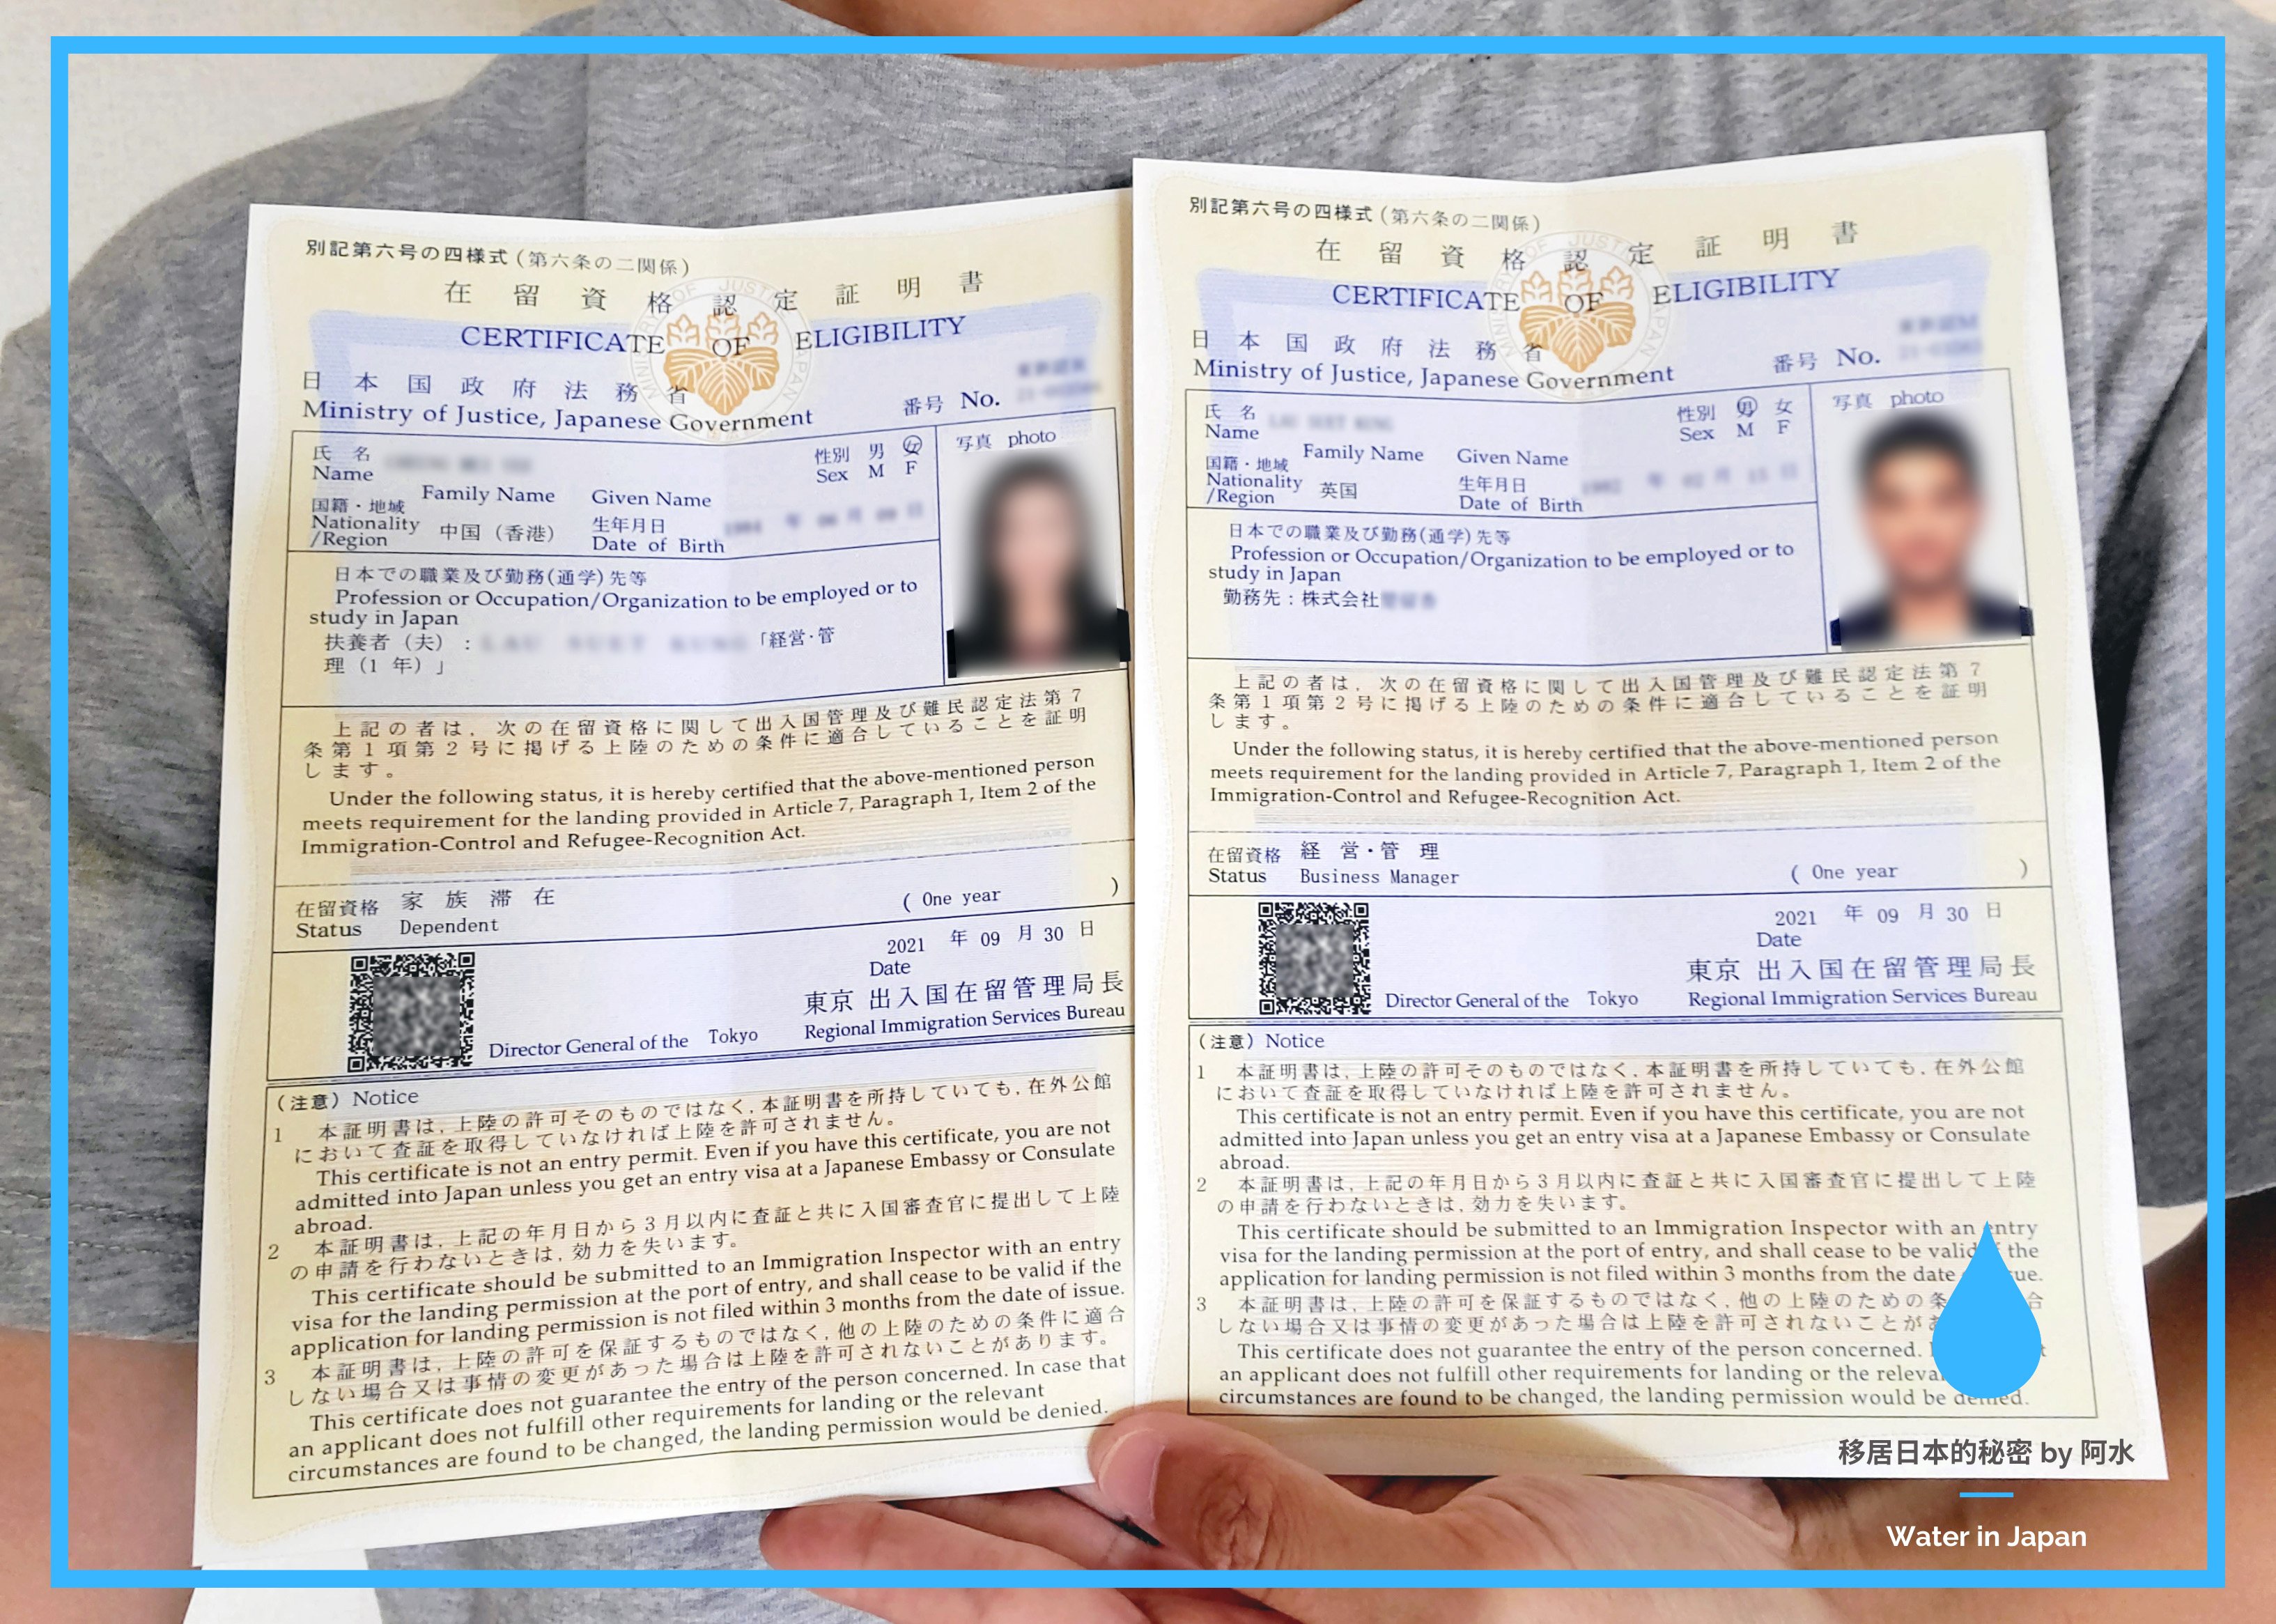 別記第六号の四様式(第六条の二関係)
在留資格認定証明書
CERTIFICATE OF ELIGIBILITY
日本国政府法務省
Ministry of Justice, Japanese Government
番号 No.
氏名
Name
Family Name Given Name
性別 男 女
Sex M F
写真 photo
国籍・地域
Nationality
/Region
中国(香港)
生年月日
Date of Birth
年 月 日
日本での職業及び勤務(通学)先等
Profession or Occupation/Organization to be employed or to
study in Japan
扶養者(夫):「経営・管
理(1 年)」
上記の者は,次の在留資格に関して出入国管理及び難民認定法第7
条第1項第2号に掲げる上陸のための条件に適合していることを証明
します。
Under the following status, it is hereby certified that the above-mentioned person
meets requirement for the landing provided in Article 7, Paragraph 1, Item 2 of the
Immigration-Control and Refugee-Recognition Act.
在留資格 家族滞在
Status Dependent
( One year )
2021 年 09 月 30 日
Date
東京 出入国在留管理局長
Director General of the Tokyo Regional Immigration Services Bureau
(注意) Notice
1 本証明書は,上陸の許可そのものではなく,本証明書を所持していても,在外公館
において査証を取得していなければ上陸を許可されません。
This certificate is not an entry permit. Even if you have this certificate, you are not
admitted into Japan unless you get an entry visa at a Japanese Embassy or Consulate
abroad.
2 本証明書は,上記の年月日から3月以内に査証と共に入国審査官に提出して上陸
の申請を行わないときは,効力を失います。
This certificate should be submitted to an Immigration Inspector with an entry
visa for the landing permission at the port of entry, and shall cease to be valid if the
application for landing permission is not filed within 3 months from the date of issue.
3 本証明書は,上陸の許可を保証するものではなく,他の上陸のための条件に適合
しない場合又は事情の変更があった場合は上陸を許可されないことがあります。
This certificate does not guarantee the entry of the person concerned. In case that
an applicant does not fulfill other requirements for landing or the relevant
circumstances are found to be changed, the landing permission would be denied.
別記第六号の四様式(第六条の二関係)
在留資格認定証明書
CERTIFICATE OF ELIGIBILITY
日本国政府法務省
Ministry of Justice, Japanese Government
番号 No.
氏名
Name
Family Name Given Name
性別 男 女
Sex M F
写真 photo
国籍・地域
Nationality
/Region
英国
生年月日
Date of Birth
年 月 日
日本での職業及び勤務(通学)先等
Profession or Occupation/Organization to be employed or to
study in Japan
勤務先:株式会社
上記の者は,次の在留資格に関して出入国管理及び難民認定法第7
条第1項第2号に掲げる上陸のための条件に適合していることを証明
します。
Under the following status, it is hereby certified that the above-mentioned person
meets requirement for the landing provided in Article 7, Paragraph 1, Item 2 of the
Immigration-Control and Refugee-Recognition Act.
在留資格 経営・管理
Status Business Manager
( One year )
2021 年 09 月 30 日
Date
東京 出入国在留管理局長
Director General of the Tokyo Regional Immigration Services Bureau
(注意) Notice
1 本証明書は,上陸の許可そのものではなく,本証明書を所持していても,在外公館
において査証を取得していなければ上陸を許可されません。
This certificate is not an entry permit. Even if you have this certificate, you are not
admitted into Japan unless you get an entry visa at a Japanese Embassy or Consulate
abroad.
2 本証明書は,上記の年月日から3月以内に査証と共に入国審査官に提出して上陸
の申請を行わないときは,効力を失います。
This certificate should be submitted to an Immigration Inspector with an entry
visa for the landing permission at the port of entry, and shall cease to be valid the
application for landing permission is not filed within 3 months from the date
3 本証明書は,上陸の許可を保証するものではなく,他の上陸のための条 合
しない場合又は事情の変更があった場合は上陸を許可されないことが
This certificate does not guarantee the entry of the person concerned.
an applicant does not fulfill other requirements for landing or the
circumstances are found to be changed, the landing permission would be denied.
移居日本的秘密 by 阿水
Water in Japan